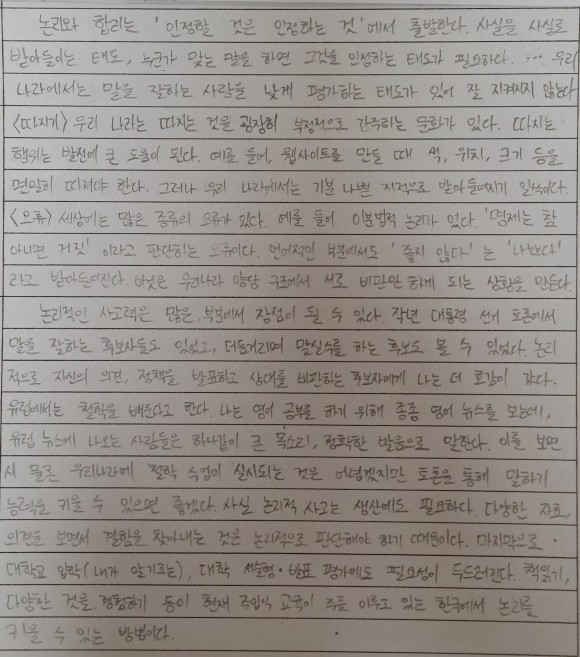 논리와 합리는 '인정할 것은 인정하는 것'에서 출발한다. 사실을 사실로
받아들이는 태도, 누군가 맞는 말을 하면 그것을 인정하는 태도가 필요하다. … 우리
나라에서는 말을 잘하는 사람을 낮게 평가하는 태도가 있어 잘 지켜지지 않는다
<따지기> 우리 나라는 따지는 것을 굉장히 부정적으로 간주하는 문화가 있다. 따지는
행위는 발전에 큰 도움이 된다. 예를 들어, 웹사이트를 만들 때 색, 위치, 크기 등을
면밀히 따져야 한다. 그러나 우리 나라에서는 기분 나쁜 지적으로 받아들여지기 일쑤이다.
<오류> 세상에는 많은 종류의 오류가 있다. 예를 들어 이분법적 논리가 있다. '명제는 참
아니면 거짓' 이라고 판단하는 오류이다. 언어적인 부분에서도 '좋지 않다' 는 '나쁘다'
라고 받아들여진다. 이것은 우리나라 양당 구조에서 서로 비판만 하게 되는 상황을 만든다.
논리적인 사고력은 많은 부분에서 장점이 될 수 있다. 작년 대통령 선거 토론에서
말을 잘하는 후보자들도 있었고, 더듬거리며 말실수를 하는 후보도 볼 수 있었다. 논리
적으로 자신의 의견, 정책을 발표하고 상대를 비판하는 후보자에게 나는 더 호감이 갔다.
유럽에서는 철학을 배운다고 한다. 나는 영어 공부를 하기 위해 종종 영어 뉴스를 보는데,
유럽 뉴스에 나오는 사람들은 하나같이 큰 목소리, 정확한 발음으로 말한다. 이를 보면
서 물론 우리나라에 철학 수업이 실시되는 것은 어렵겠지만 토론을 통해 말하기
능력을 키울 수 있으면 좋겠다. 사실 논리적 사고는 생산에도 필요하다. 다양한 자료,
의견을 보면서 결함을 찾아내는 것은 논리적으로 판단해야 하기 때문이다. 마지막으로
대학교 입학(내가 알기로는), 대학 서술형·발표 평가에도 필요성이 두드러진다. 책읽기,
다양한 것을 경험하기 등이 현재 주입식 교육이 주를 이루고 있는 한국에서 논리를
키울 수 있는 방법이다.